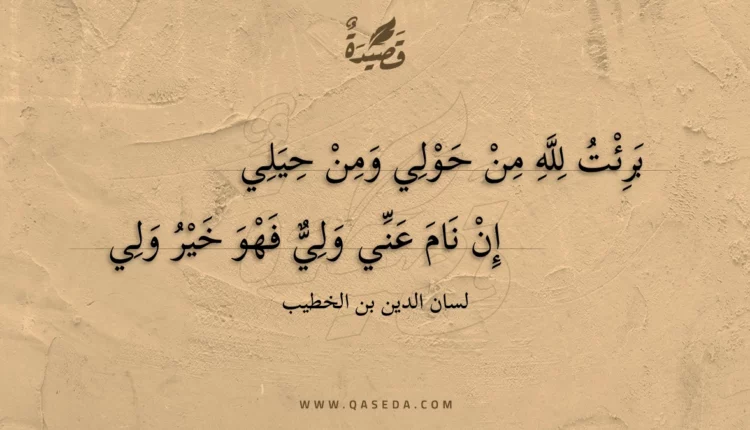 قَصِيدَةٌ
بَرِئْتُ لِلَّهِ مِنْ حَوْلِي وَمِنْ حِيَلِي
إِنْ نَامَ عَنِّي وَلِيٌّ فَهْوَ خَيْرُ وَلِي
لسان الدين بن الخطيب
WWW.QASEDA.COM